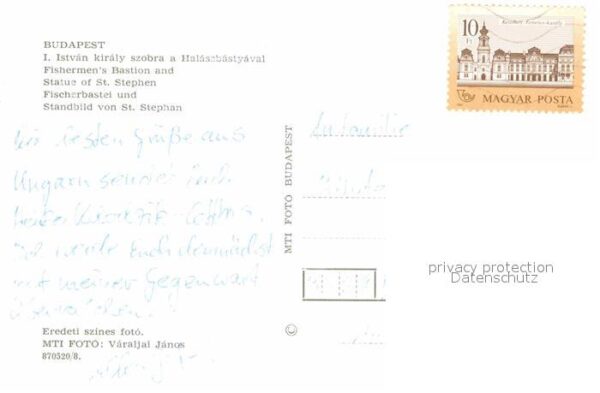 BUDAPEST
I. István király szobra a Halászbástyával
Fishermen's Bastion and
Statue of St. Stephen
Fischerbastei und
Standbild von St. Stephan
besten Grüße aus
Ungarn sendet Euch
Ich werde Euch demnächst
mit meiner Gegenwart
Eredeti színes fotó.
MTI FOTÓ: Váraljai János
870520/8.
MTI FOTÓ BUDAPEST
©
10 Ft
Keszthely Festetics-kastély
MAGYAR POSTA
privacy protection
Datenschutz